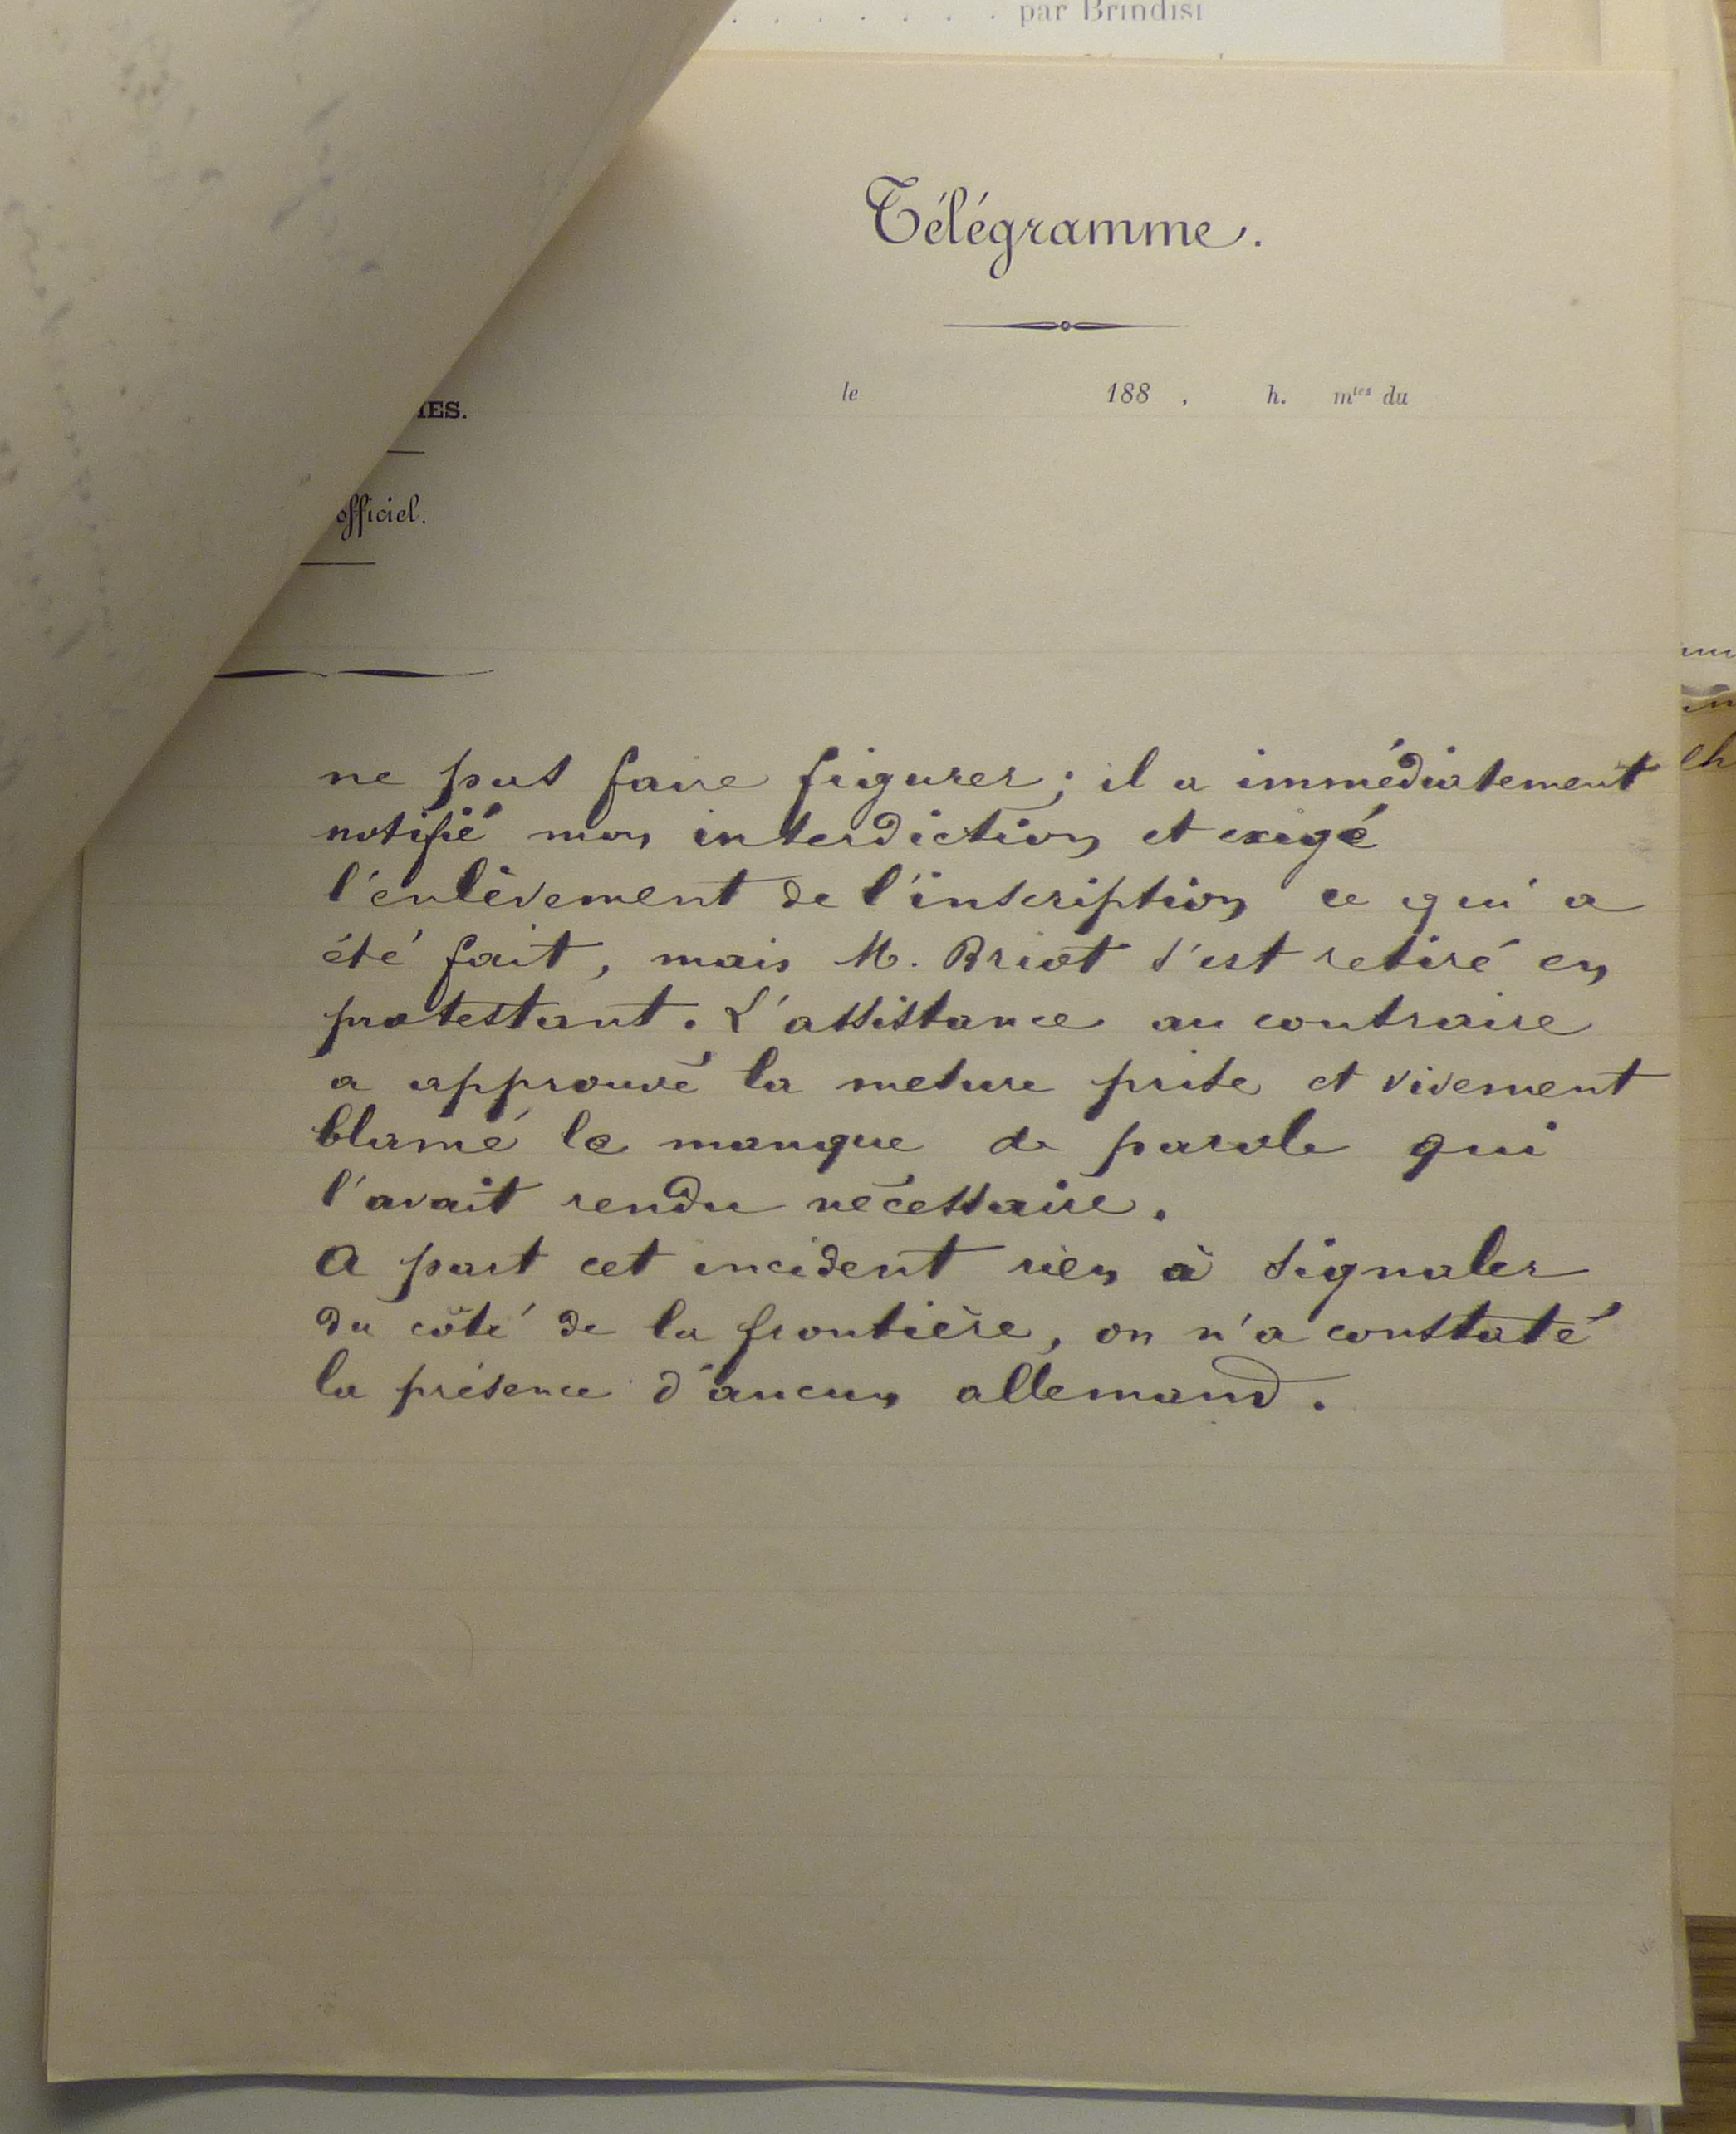 par Brindisi
Télégramme.
le 188 , h. mtes du
officiel.
ne pas faire figurer ; il a immédiatement
notifié mon interdiction et exigé
l'enlèvement de l'inscription ce qui a
été fait, mais M. Briot s'est retiré en
protestant. L'assistance au contraire
a approuvé la mesure prise et vivement
blamé le manque de parole qui
l'avait rendu nécessaire.
A part cet incident rien à signaler
du côté de la frontière, on n'a constaté
la présence d'aucun allemand.